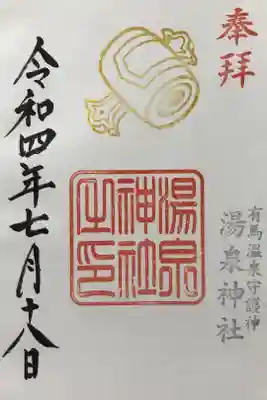 奉拝
有馬温泉守護神
湯泉神社
湯泉
神社
之印
令和四年七月十八日